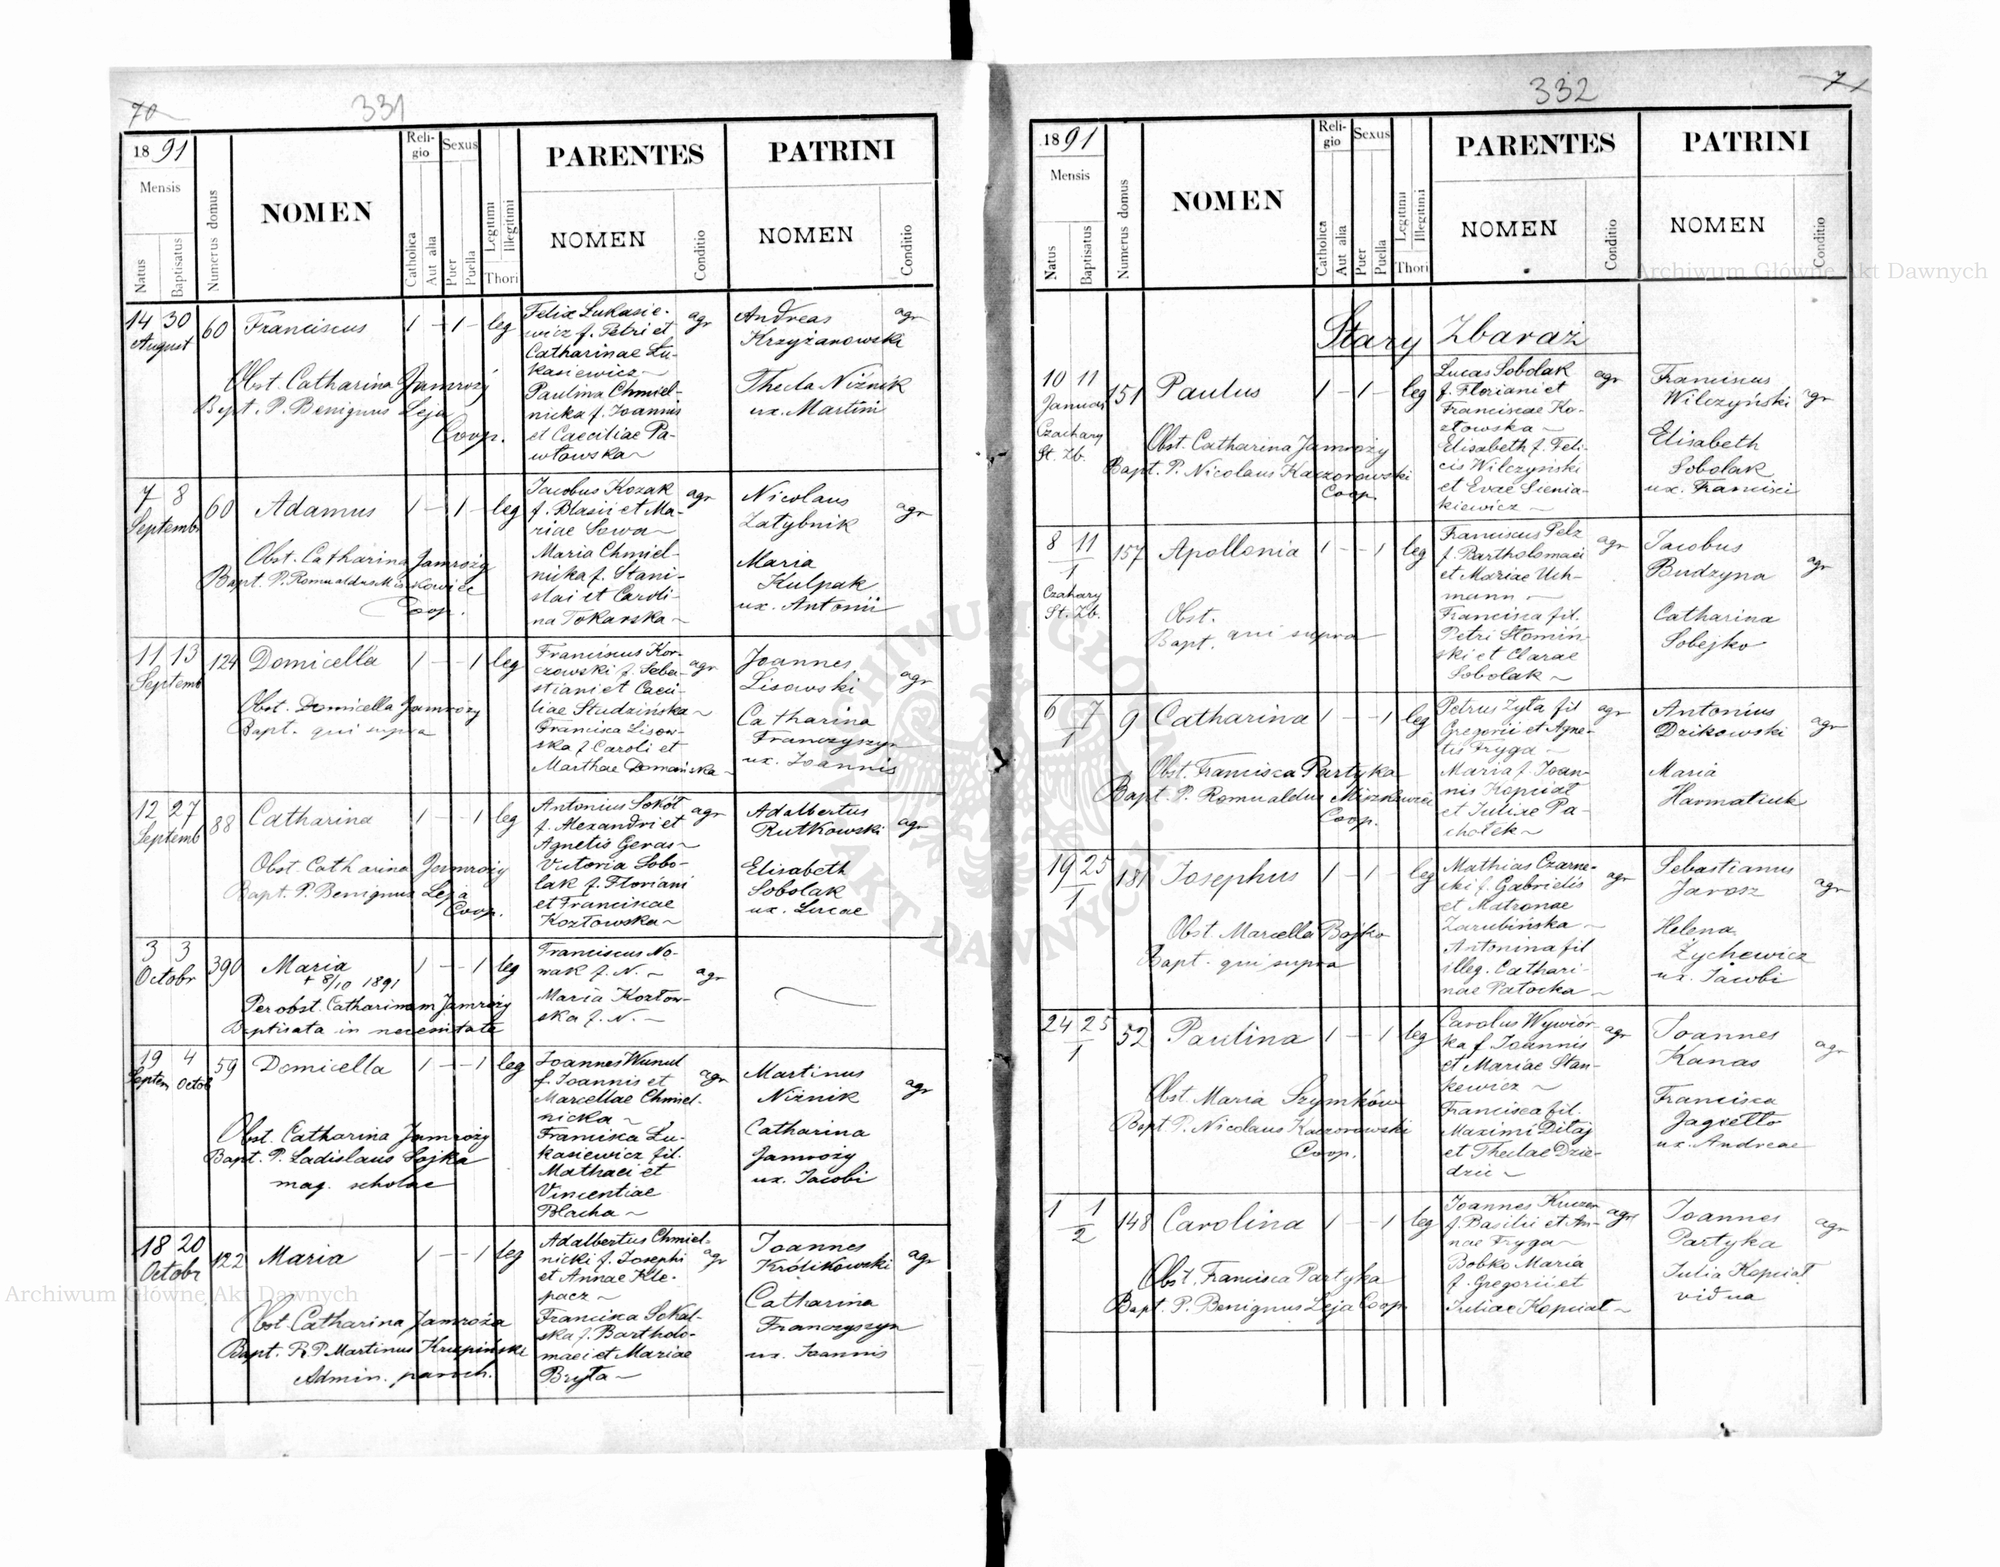 70
331
1891
Mensis
Natus
Baptisatus
Numerus domus
NOMEN
Religio
Catholica
Aut alia
Sexus
Puer
Puella
Legitimi
Illegitimi
Thori
PARENTES
NOMEN
Conditio
PATRINI
NOMEN
Conditio
14 30 60 Franciscus 1 — 1 — leg
August
Obst. Catharina Jamroży
Bapt. P. Benignus Leja
Coop.
Felix Łukasie-
wicz f. Petri et
Catharinae Łu-
kasiewicz
Paulina Chmiel-
nicka f. Joannis
et Caeciliae Pa-
włowska
agr
Andreas
Krzyżanowski
agr
Thecla Niżnik
ux. Martini
7 8 60 Adamus 1 — 1 — leg
Septemb
Obst. Catharina Jamroży
Bapt. P. Romualdus
Coop.
Jacobus Kozak
f. Blasii et Ma-
riae Sowa
Maria Chmiel-
nicka f. Stani-
slai et Caroli
na Tokarska
agr
Nicolaus
Zatybnik
agr
Maria
Kulpak
ux. Antonii
11 13 124 Domicella 1 — — 1 leg
Septemb
Obst. Domicella Jamroży
Bapt. qui supra
Franciscus Kor-
czowski f. Seba-
stiani et Caeci-
liae Studzińska
Francisca Lisow-
ska f. Caroli et
Marthae Domańska
agr
Joannes
Lisowski
agr
Catharina
Franczyszyn
ux. Joannis
12 27 88 Catharina 1 — — 1 leg
Septemb
Obst. Catharina Jamroży
Bapt. P. Benignus Leja
Coop.
Antonius Sokół
f. Alexandri et
Agnetis Geras
Victoria Sobo-
lak f. Floriani
et Franciscae
Kozłowska
agr
Adalbertus
Rutkowski
agr
Elisabeth
Sobolak
ux. Lucae
3 3 390 Maria 1 — — 1 leg
Octobr
+ 8/10 1891
Per obst. Catharinam Jamroży
Baptisata in necessitate
Franciscus No-
wak f. N. —
Maria Kozłow-
ska f. N. —
agr
19 4 59 Domicella 1 — — 1 leg
Septem Octob
Obst. Catharina Jamroży
Bapt. P. Ladislaus Sojka
mag. scholae
Joannes Wunul
f. Joannis et
Marcellae Chmiel-
nicka
Francisca Łu-
kasiewicz fil.
Mathaei et
Vincentiae
Blacha
agr
Martinus
Niżnik
agr
Catharina
Jamroży
ux. Jacobi
18 20 122 Maria 1 — — 1 leg
Octobr
Obst. Catharina Jamroża
Bapt. R. P. Martinus Krupiński
Admin. paroch.
Adalbertus Chmiel-
nicki f. Josephi
et Annae Kle-
pacz
Francisca Sokal-
ska f. Bartholo-
maei et Mariae
Bryła
agr
Joannes
Królikowski
agr
Catharina
Franczyszyn
ux. Joannis
332
71
1891
Mensis
Natus
Baptisatus
Numerus domus
NOMEN
Religio
Catholica
Aut alia
Sexus
Puer
Puella
Legitimi
Illegitimi
Thori
PARENTES
NOMEN
Conditio
PATRINI
NOMEN
Conditio
Stary Zbaraż
10 11 151 Paulus 1 — 1 — leg
Januar
Czachary
St. Zb.
Obst. Catharina Jamroży
Bapt. P. Nicolaus Kaczorowski
Coop.
Lucas Sobolak
f. Floriani et
Franciscae Ko-
złowska
Elisabeth f. Feli-
cis Wilczyński
et Evae Sienia-
kiewicz
agr
Franciscus
Wilczyński
agr
Elisabeth
Sobolak
ux. Francisci
8 11 157 Apollonia 1 — — 1 leg
1
Czahary
St. Zb.
Obst.
Bapt. qui supra
Franciscus Pelz
f. Bartholomaei
et Mariae Uch-
mann
Francisca fil.
Petri Słomiń
ski et Clarae
Sobolak
agr
Jacobus
Budzyna
agr
Catharina
Sobejko
6 7 9 Catharina 1 — — 1 leg
1
Obst. Francisca Partyka
Bapt. P. Romualdus Miszkiewicz
Coop.
Petrus Żyła fil
Gregorii et Agne-
tis Fryga
Maria f. Joan-
nis Kopciał
et Juliae Pa-
chołek
agr
Antonius
Dzikowski
agr
Maria
Harmatiuk
19 25 181 Josephus 1 — 1 — leg
1
Obst Marcella Bojko
Bapt. qui supra
Mathias Czarne-
cki f. Gabrielis
et Matronae
Zarubińska
Antonina fil
illeg. Cathari-
nae Patocka
agr
Sebastianus
Jarosz
agr
Helena
Zychewicz
ux. Jacobi
24 25 52 Paulina 1 — — 1 leg
1
Obst. Maria Szymków
Bapt P. Nicolaus Kaczorowski
Coop.
Carolus Wywiór-
ka f. Joannis
et Mariae Stan-
kewicz
Francisca fil.
Maximi Ditaj
et Theclae Dzie-
dzic
agr
Joannes
Kanas
agr
Francisca
Jagiełło
ux. Andreae
1 1 148 Carolina 1 — — 1 leg
2
Obst. Francisca Partyka
Bapt. P. Benignus Leja Coop
Joannes Kuczer
f. Basilii et An-
nae Fryga
Bobko Maria
f. Gregorii et
Juliae Kopciał
agr
Joannes
Partyka
agr
Julia Kopciał
vidua
Archiwum Główne Akt Dawnych
Archiwum Główne Akt Dawnych
ARCHIWUM GŁÓWNE AKT DAWNYCH